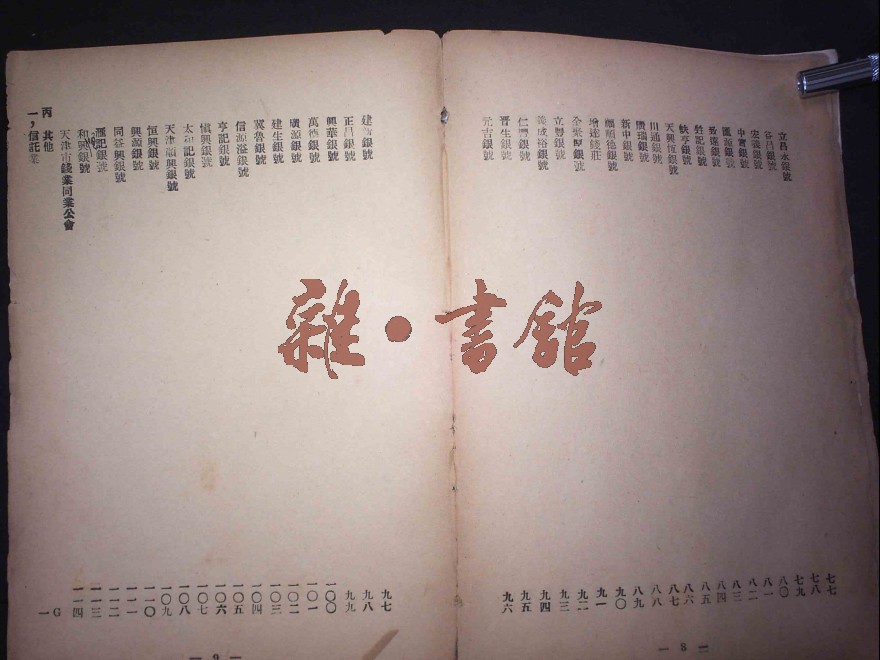 立昌永銀號
谷昌銀號
宏義銀號
中實銀號
匯源銀號
致遠銀號
銀號
餘亨銀號
天興恆銀號
川通銀號
廣瑞銀號
新中銀號
福順德銀號
增達錢莊
全聚厚銀號
立豐銀號
義成裕銀號
仁豐銀號
晋生銀號
元吉銀號
七七
七八
七九
八〇
八一
八二
八三
八四
八五
八六
八七
八八
八九
九〇
九一
九二
九三
九四
九五
九六
— 8 —
銀號
正昌銀號
興華銀號
萬德銀號
廣源銀號
建生銀號
冀魯銀號
信源溢銀號
亨記銀號
愼興銀號
太和記銀號
天津順興銀號
恒興銀號
興源銀號
同益興銀號
滙記銀號
和興銀號
天津市錢業同業公會
丙 其他
一,信託業
九七
九八
九九
一〇〇
一〇一
一〇二
一〇三
一〇四
一〇五
一〇六
一〇七
一〇八
一〇九
一一〇
一一一
一一二
一一三
一一四
G一
— 9 —
雜·書舘